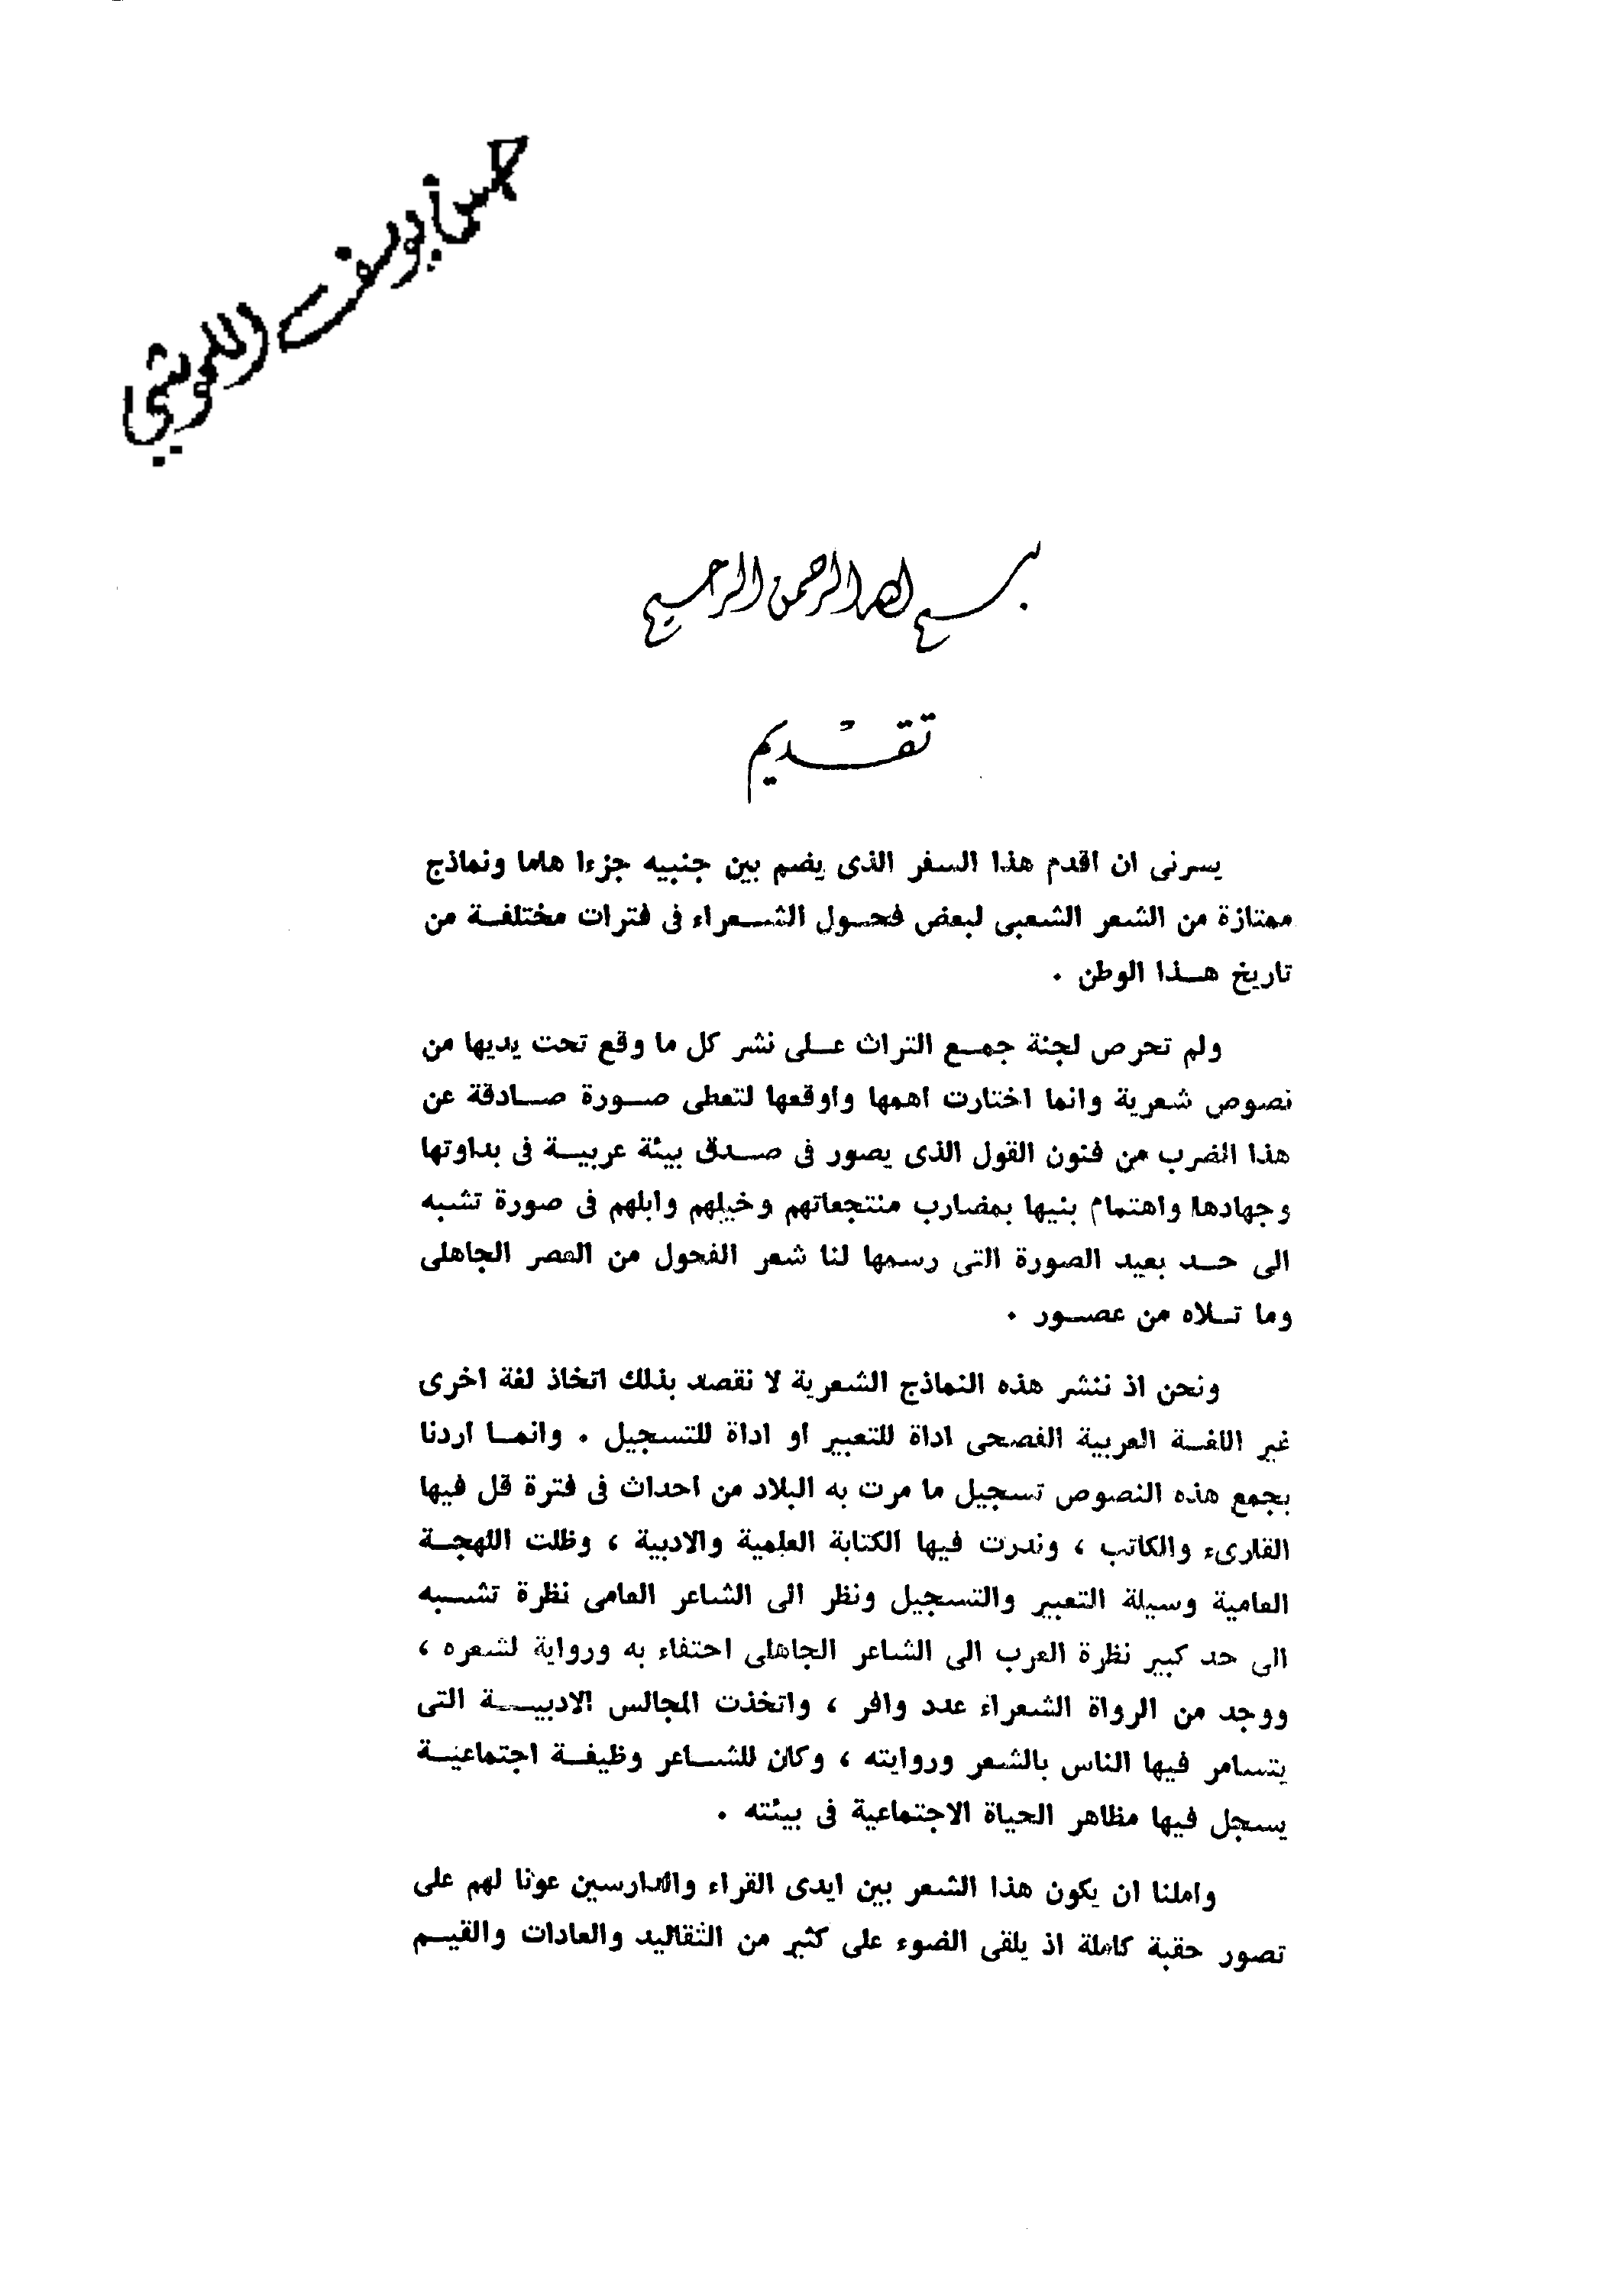 حسن يوسف اللموشي
بسم الله الرحمن الرحيم
تقديم
يسرنى ان اقدم هذا السفر الذى يضم بين جنبيه جزءا هاما ونماذج
ممتازة من الشعر الشعبى لبعض فحول الشعراء فى فترات مختلفة من
تاريخ هذا الوطن .
ولم تحرص لجنة جمع التراث على نشر كل ما وقع تحت يديها من
نصوص شعرية وانما اختارت اهمها واوقعها لتعطى صورة صادقة عن
هذا الضرب من فنون القول الذى يصور فى صدق بيئة عربية فى بداوتها
وجهادها واهتمام بنيها بمضارب منتجعاتهم وخيلهم وابلهم فى صورة تشبه
الى حد بعيد الصورة التى رسمها لنا شعر الفحول من العصر الجاهلى
وما تلاه من عصور .
ونحن اذ ننشر هذه النماذج الشعرية لا نقصد بذلك اتخاذ لغة اخرى
غير اللغة العربية الفصحى اداة للتعبير او اداة للتسجيل . وانما اردنا
بجمع هذه النصوص تسجيل ما مرت به البلاد من احداث فى فترة قل فيها
القارىء والكاتب ، وندرت فيها الكتابة العلمية والادبية ، وظلت اللهجة
العامية وسيلة التعبير والتسجيل ونظر الى الشاعر العامى نظرة تشبه
الى حد كبير نظرة العرب الى الشاعر الجاهلى احتفاء به ورواية لشعره ،
ووجد من الرواة الشعراء عدد وافر ، واتخذت المجالس الادبية التى
يتسامر فيها الناس بالشعر وروايته ، وكان للشاعر وظيفة اجتماعية
يسجل فيها مظاهر الحياة الاجتماعية فى بيئته .
واملنا ان يكون هذا الشعر بين ايدى القراء والدارسين عونا لهم على
تصور حقبة كاملة اذ يلقى الضوء على كثير من التقاليد والعادات والقيم